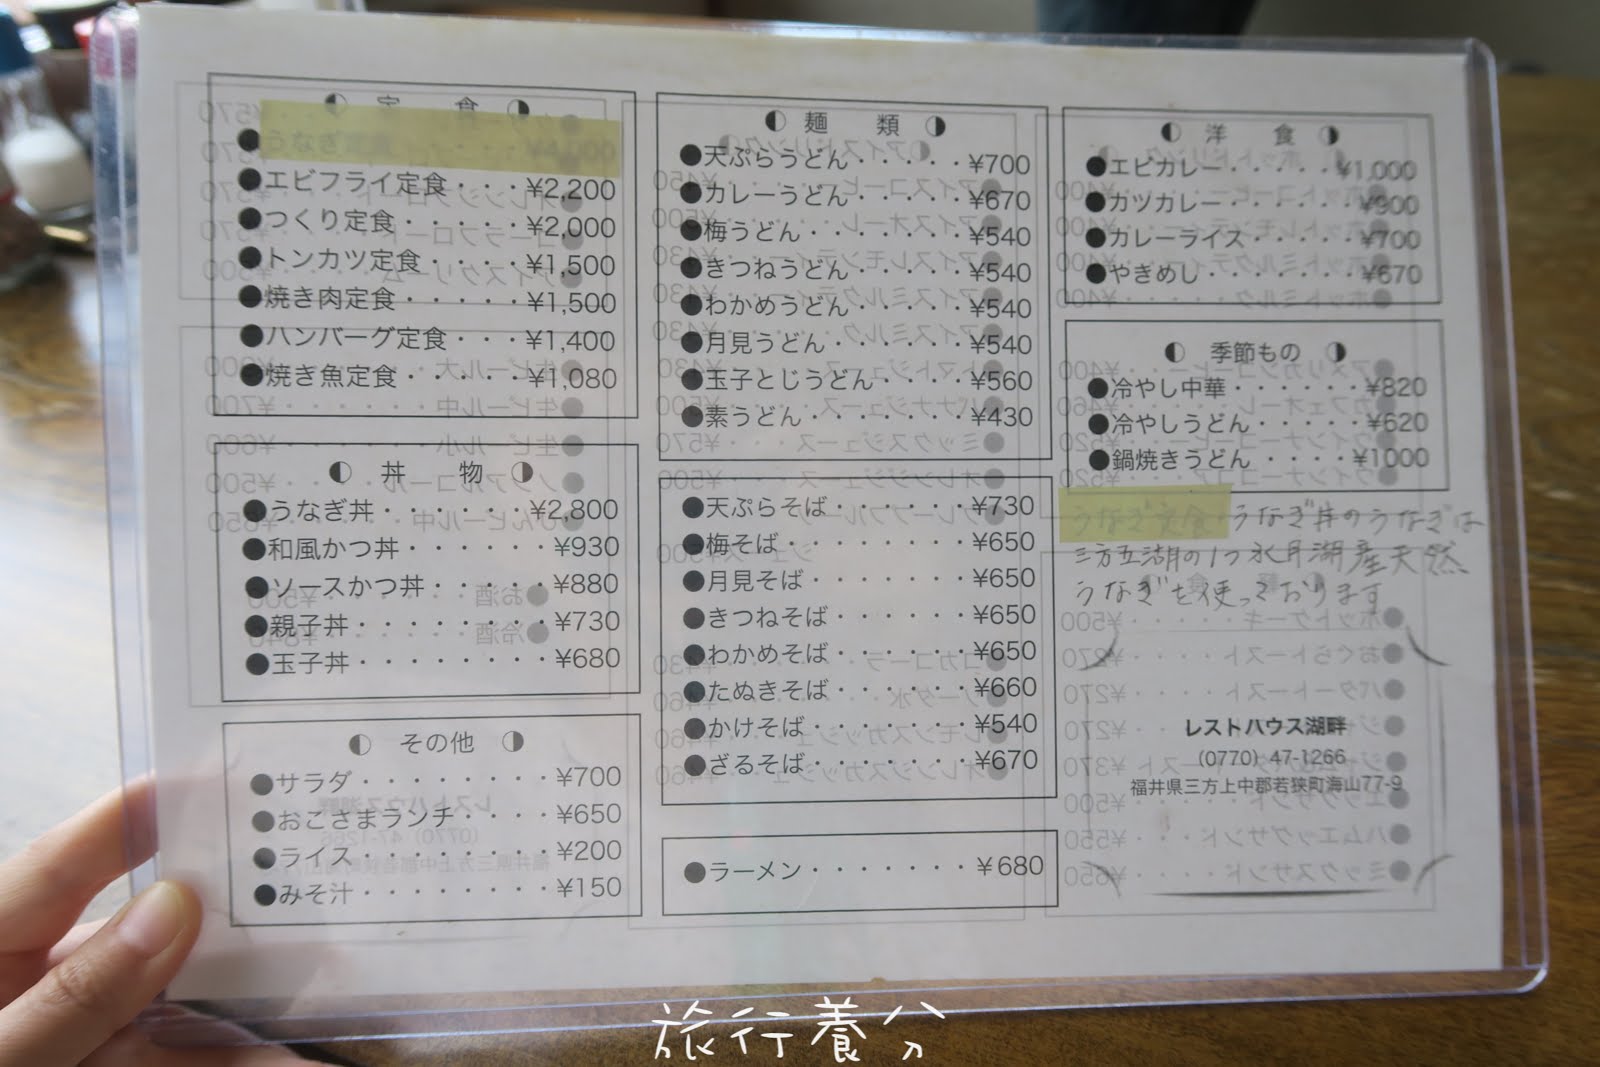 定 食
●うなぎ定食
●エビフライ定食・・・¥2,200
●つくり定食・・・・・¥2,000
●トンカツ定食・・・・¥1,500
●焼き肉定食・・・・・¥1,500
●ハンバーグ定食・・・¥1,400
●焼き魚定食・・・・・¥1,080
丼 物
●うなぎ丼・・・・・・¥2,800
●和風かつ丼・・・・・・¥930
●ソースかつ丼・・・・・¥880
●親子丼・・・・・・・・¥730
●玉子丼・・・・・・・・¥680
その他
●サラダ・・・・・・・・¥700
●おこさまランチ・・・・¥650
●ライス・・・・・・・・¥200
●みそ汁・・・・・・・・¥150
麺 類
●天ぷらうどん・・・・・¥700
●カレーうどん・・・・・¥670
●梅うどん・・・・・・・¥540
●きつねうどん・・・・・¥540
●わかめうどん・・・・・¥540
●月見うどん・・・・・・¥540
●玉子とじうどん・・・・¥560
●素うどん・・・・・・・¥430
●天ぷらそば・・・・・・¥730
●梅そば・・・・・・・・¥650
●月見そば・・・・・・・¥650
●きつねそば・・・・・・¥650
●わかめそば・・・・・・¥650
●たぬきそば・・・・・・¥660
●かけそば・・・・・・・¥540
●ざるそば・・・・・・・¥670
●ラーメン・・・・・・・¥680
洋 食
●エビカレー・・・・・¥1,000
●カツカレー・・・・・・¥900
●カレーライス・・・・・¥700
●やきめし・・・・・・・¥670
季節もの
●冷やし中華・・・・・・¥820
●冷やしうどん・・・・・¥620
●鍋焼きうどん・・・・¥1000
うなぎ定食・うなぎ丼のうなぎは
三方五湖の1つ水月湖産天然
うなぎを使っております
レストハウス湖畔
(0770) 47-1266
福井県三方上中郡若狭町海山77-9
旅行養分